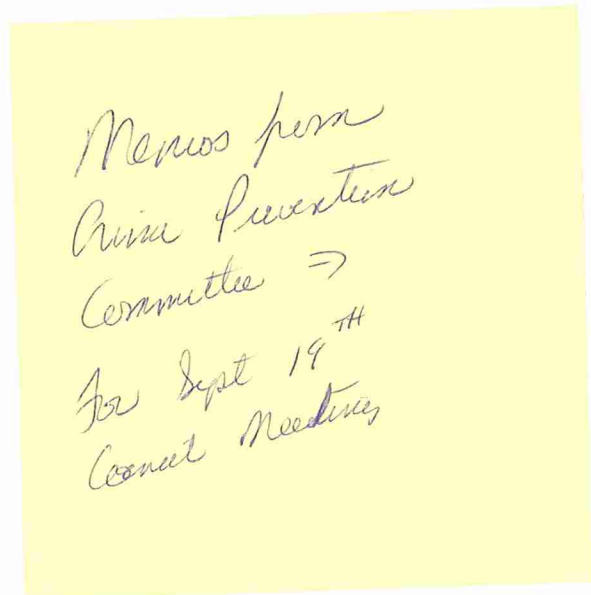 Memos from
Crime Prevention
Committee ⇒
For Sept 19TH
Council Meeting